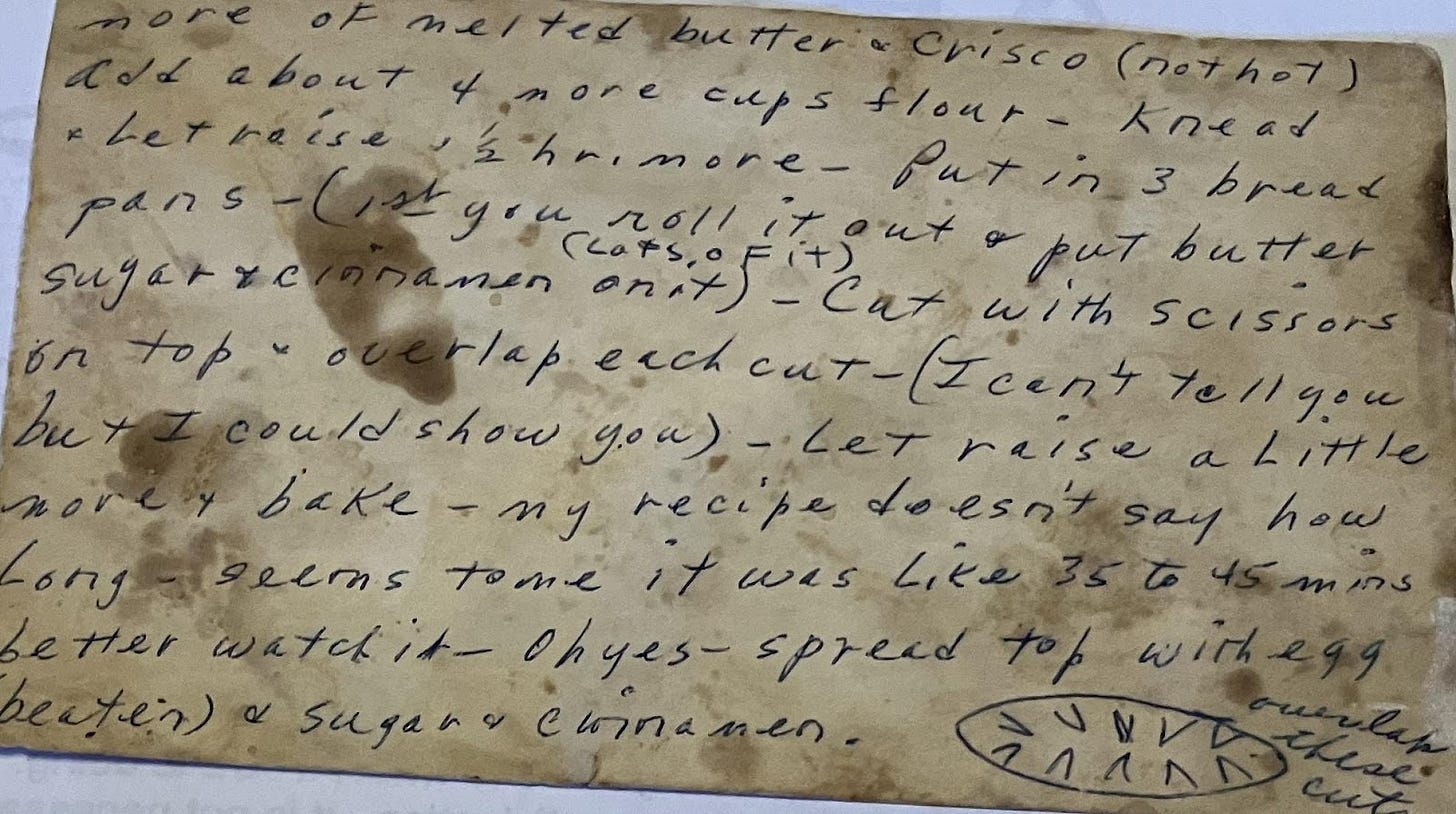 more of melted butter & Crisco (not hot)
add about 4 more cups flour - Knead
& Let raise, ½ hr. more - Put in 3 bread
pans - (1st you roll it out & put butter
(Lots of it)
sugar & cinnamen on it) - Cut with scissors
on top & overlap each cut - (I can't tell you
but I could show you) - Let raise a Little
more & bake - my recipe doesn't say how
Long - seems to me it was Like 35 to 45 mins
better watch it - Oh yes - spread top with egg
(beaten) & sugar & cinnamen.
overlap
these
cuts